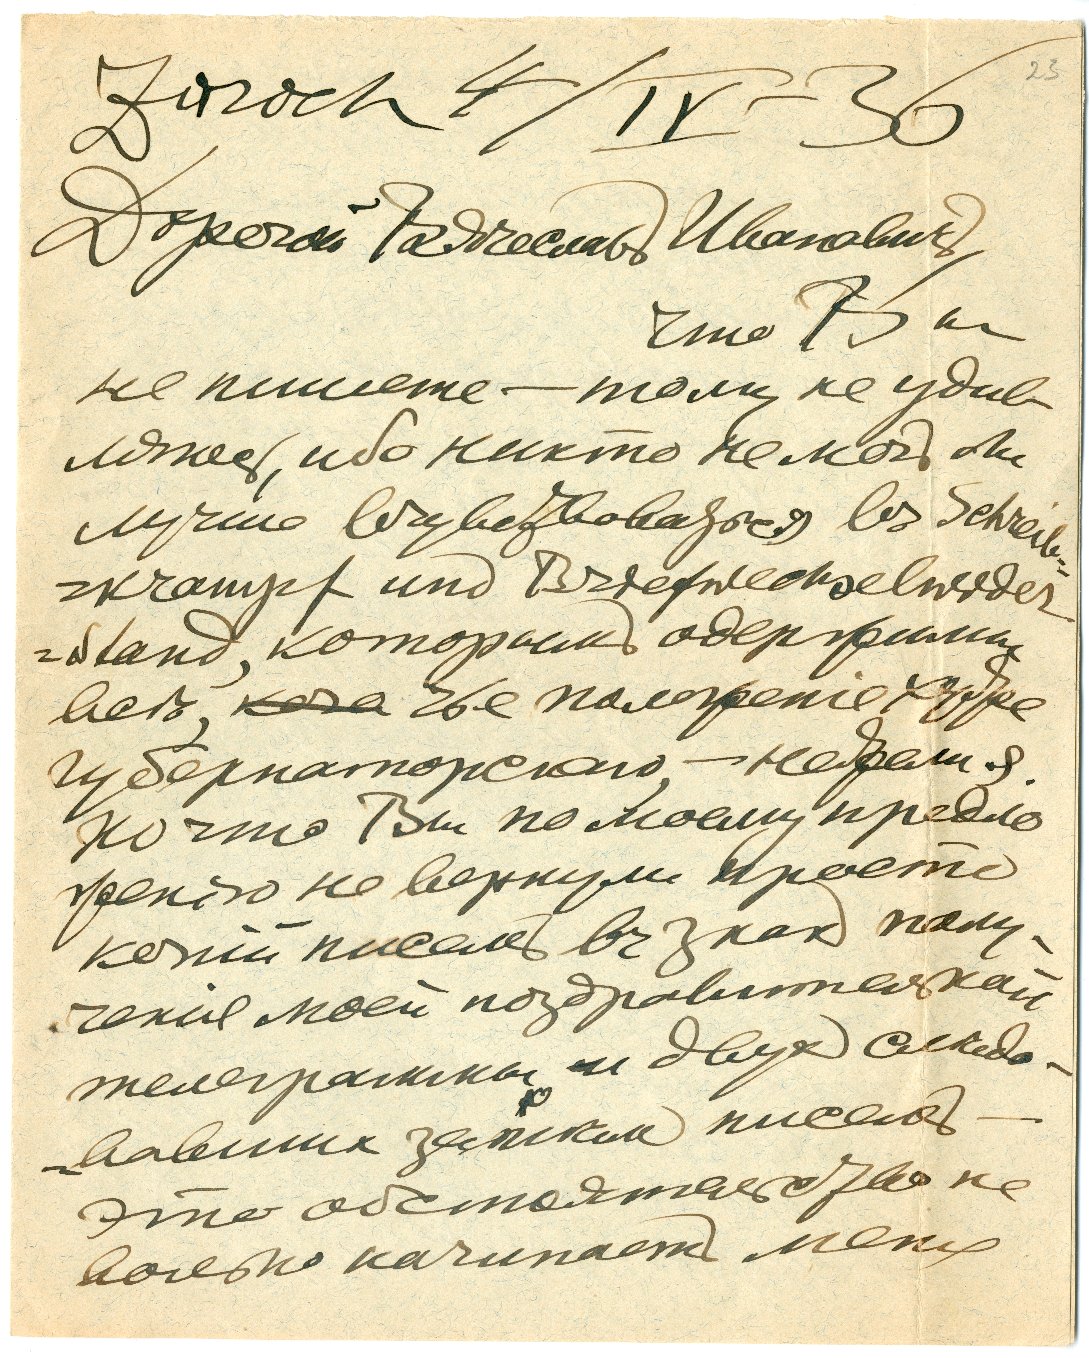 23
Zürich 4/IV–36
Дорогой Вячеславъ Ивановичъ,
что Вы
не пишете — тому не удив
ляюсь, ибо никто не могъ бы
лучше вчувствоваться въ Schreib-
=krampf und Briefwechselwider
=stand, которымъ одержимы
весь, чье положеніе хуже
губернаторскаго, —
Но что Вы по моему предло
женію не вернули просто
копій писемъ въ знакъ полу-
ченія моей поздравительной
телеграммы и двухъ слѣдо-
=вавшихъ за нею писемъ —
это обстоятельство не
вольно начинаетъ меня